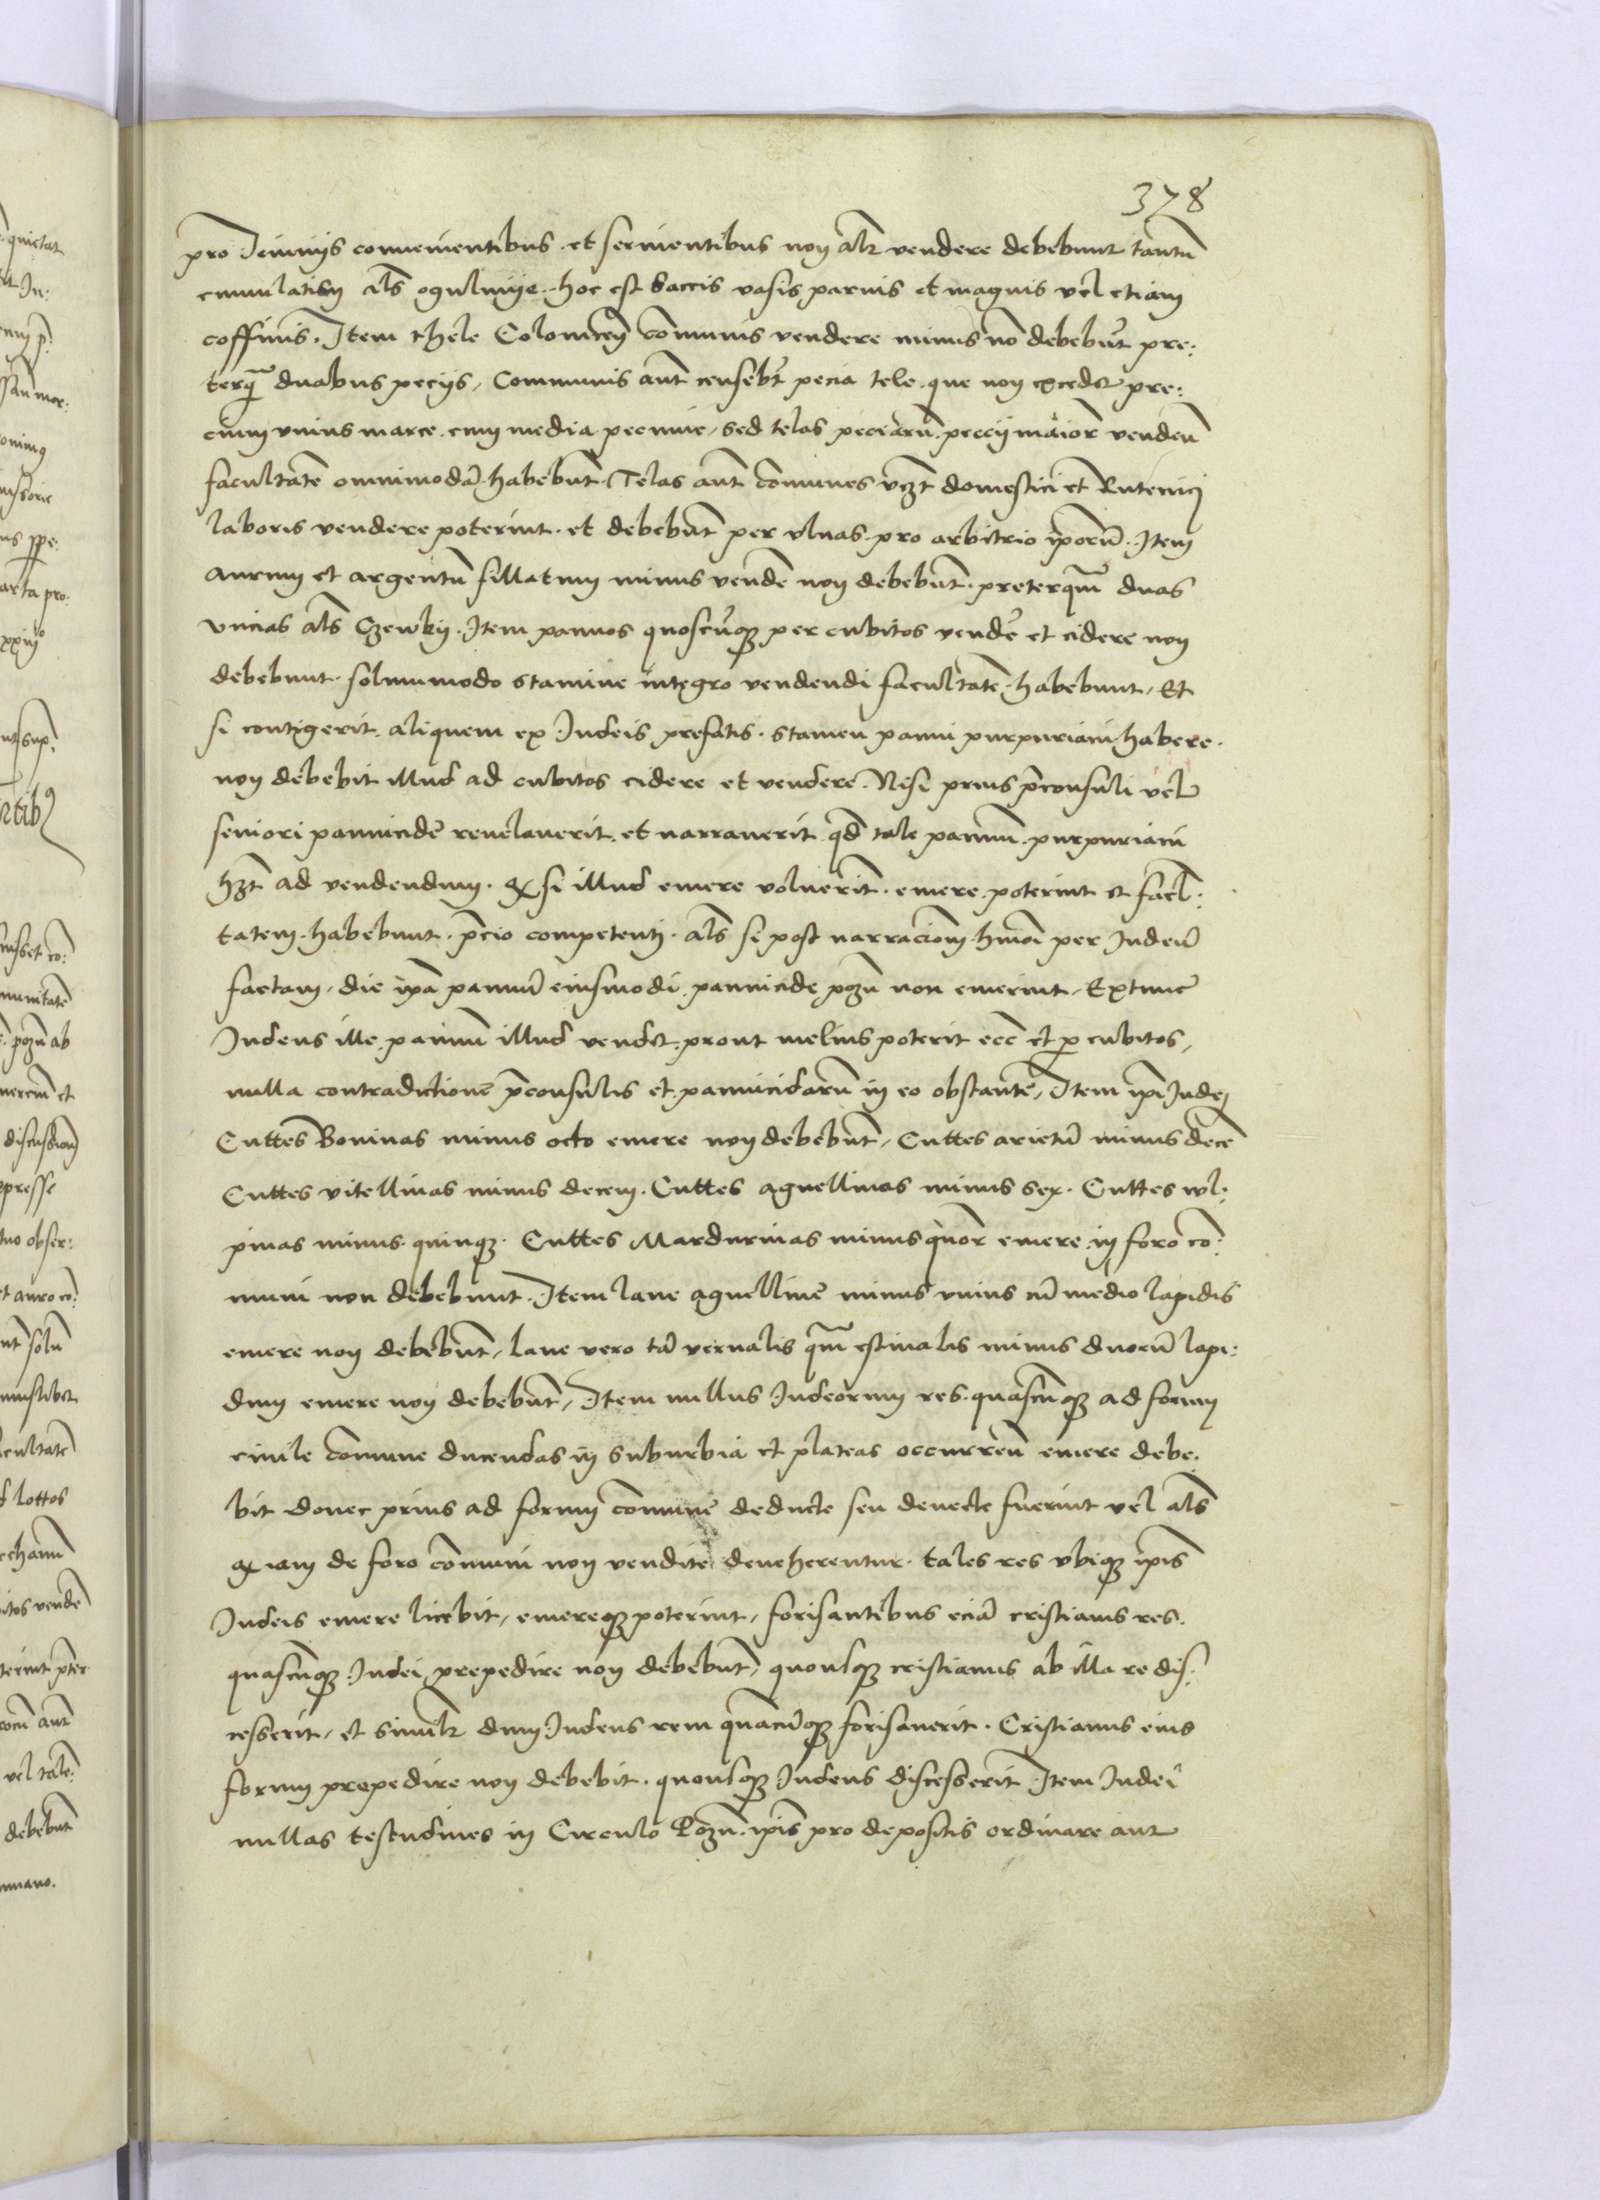 378
pro Jeiunijs conuenientibus · et seruientibus non alr vendere debebunt tantu
cumulatim als ogulnije · hoc est saccis vasis paruis et magnis vel etiam
coffinis · Item thele Colonien comunis vendere minus no debebut pre:
terq duabus pecijs, Communis aut censebt pecia tele · que non excedet pre:
cium vnius marce cum media pecunie, sed telas peciaru preccij maior venden
facultate omnimoda habebut · Telas aut comunes vzt domestici et Rutenicj
laboris vendere poterint · et debebut per vlnas pro arbitrio iporu · Item
aurum et argentu fillatum minus vende non debebut · preterqm duas
vncias als Czewky · Item pannos quoscuqz per cubitos vende et cidere non
debebunt · solummodo stamine integro vendendi facultate habebunt, Et
si contigerit aliquem ex Judeis prefatis · stamen panni purpuriani habere ·
non debebit illud ad cubitos cidere et vendere · Nisi prius pconsuli vel
seniori pannicide reuelauerit · et narrauerit qd tale pannum purpuriani
hzt ad vendendum · Et si illud emere voluerit · emere poterint et facl:
tatem habebunt · pcio competenti · als si post narraciom hmoi per Judeu
factam, die ipa pannu eiusmodi pannicide pozn non emerint, Extunc
Judeus ille pannu illud vendet prout melius poterit ecc et p cubitos,
nulla contradictione pconsulis et pannicidaru in eo obstante, Item ipi Judej
Cuttes Bouinas minus octo emere non debebut, Cuttes arietu minus dece
Cuttes vitellinas minus decem · Cuttes agnellinas minus sex · Cuttes vul:
pinas minus quinqz · Cuttes Mardurinas minus quor emere in foro co:
muni non debebunt · Item lane agnelline minus vnius cu medio lapidis
emere non debebut, lane vero ta vernalis qm estiualis minus duoru lapi:
dum emere non debebut, Item nullus Judeorum res quascuqz ad forum
ciuile comune ducendas in suburbia et plateas occurren emere debe:
bit donec prius ad forum comune deducte seu deuecte fuerint vel als
q iam de foro comuni non vendite deueherentur · tales res vbiqz ipis
Judeis emere licebit, emereqz poterint, forisantibus ecia cristianis res
quascuqz Judei prepedire non debebut, quousqz cristianus ab illa re dis:
cesserit, et similr dum Judeus rem quacuqz forisauerit · Cristianus eius
forum prepedire non debebit · quousqz Judeus discesserit · Item Judei
nullas testudines in Circulo Pozn · ipis pro depositis ordinare aut